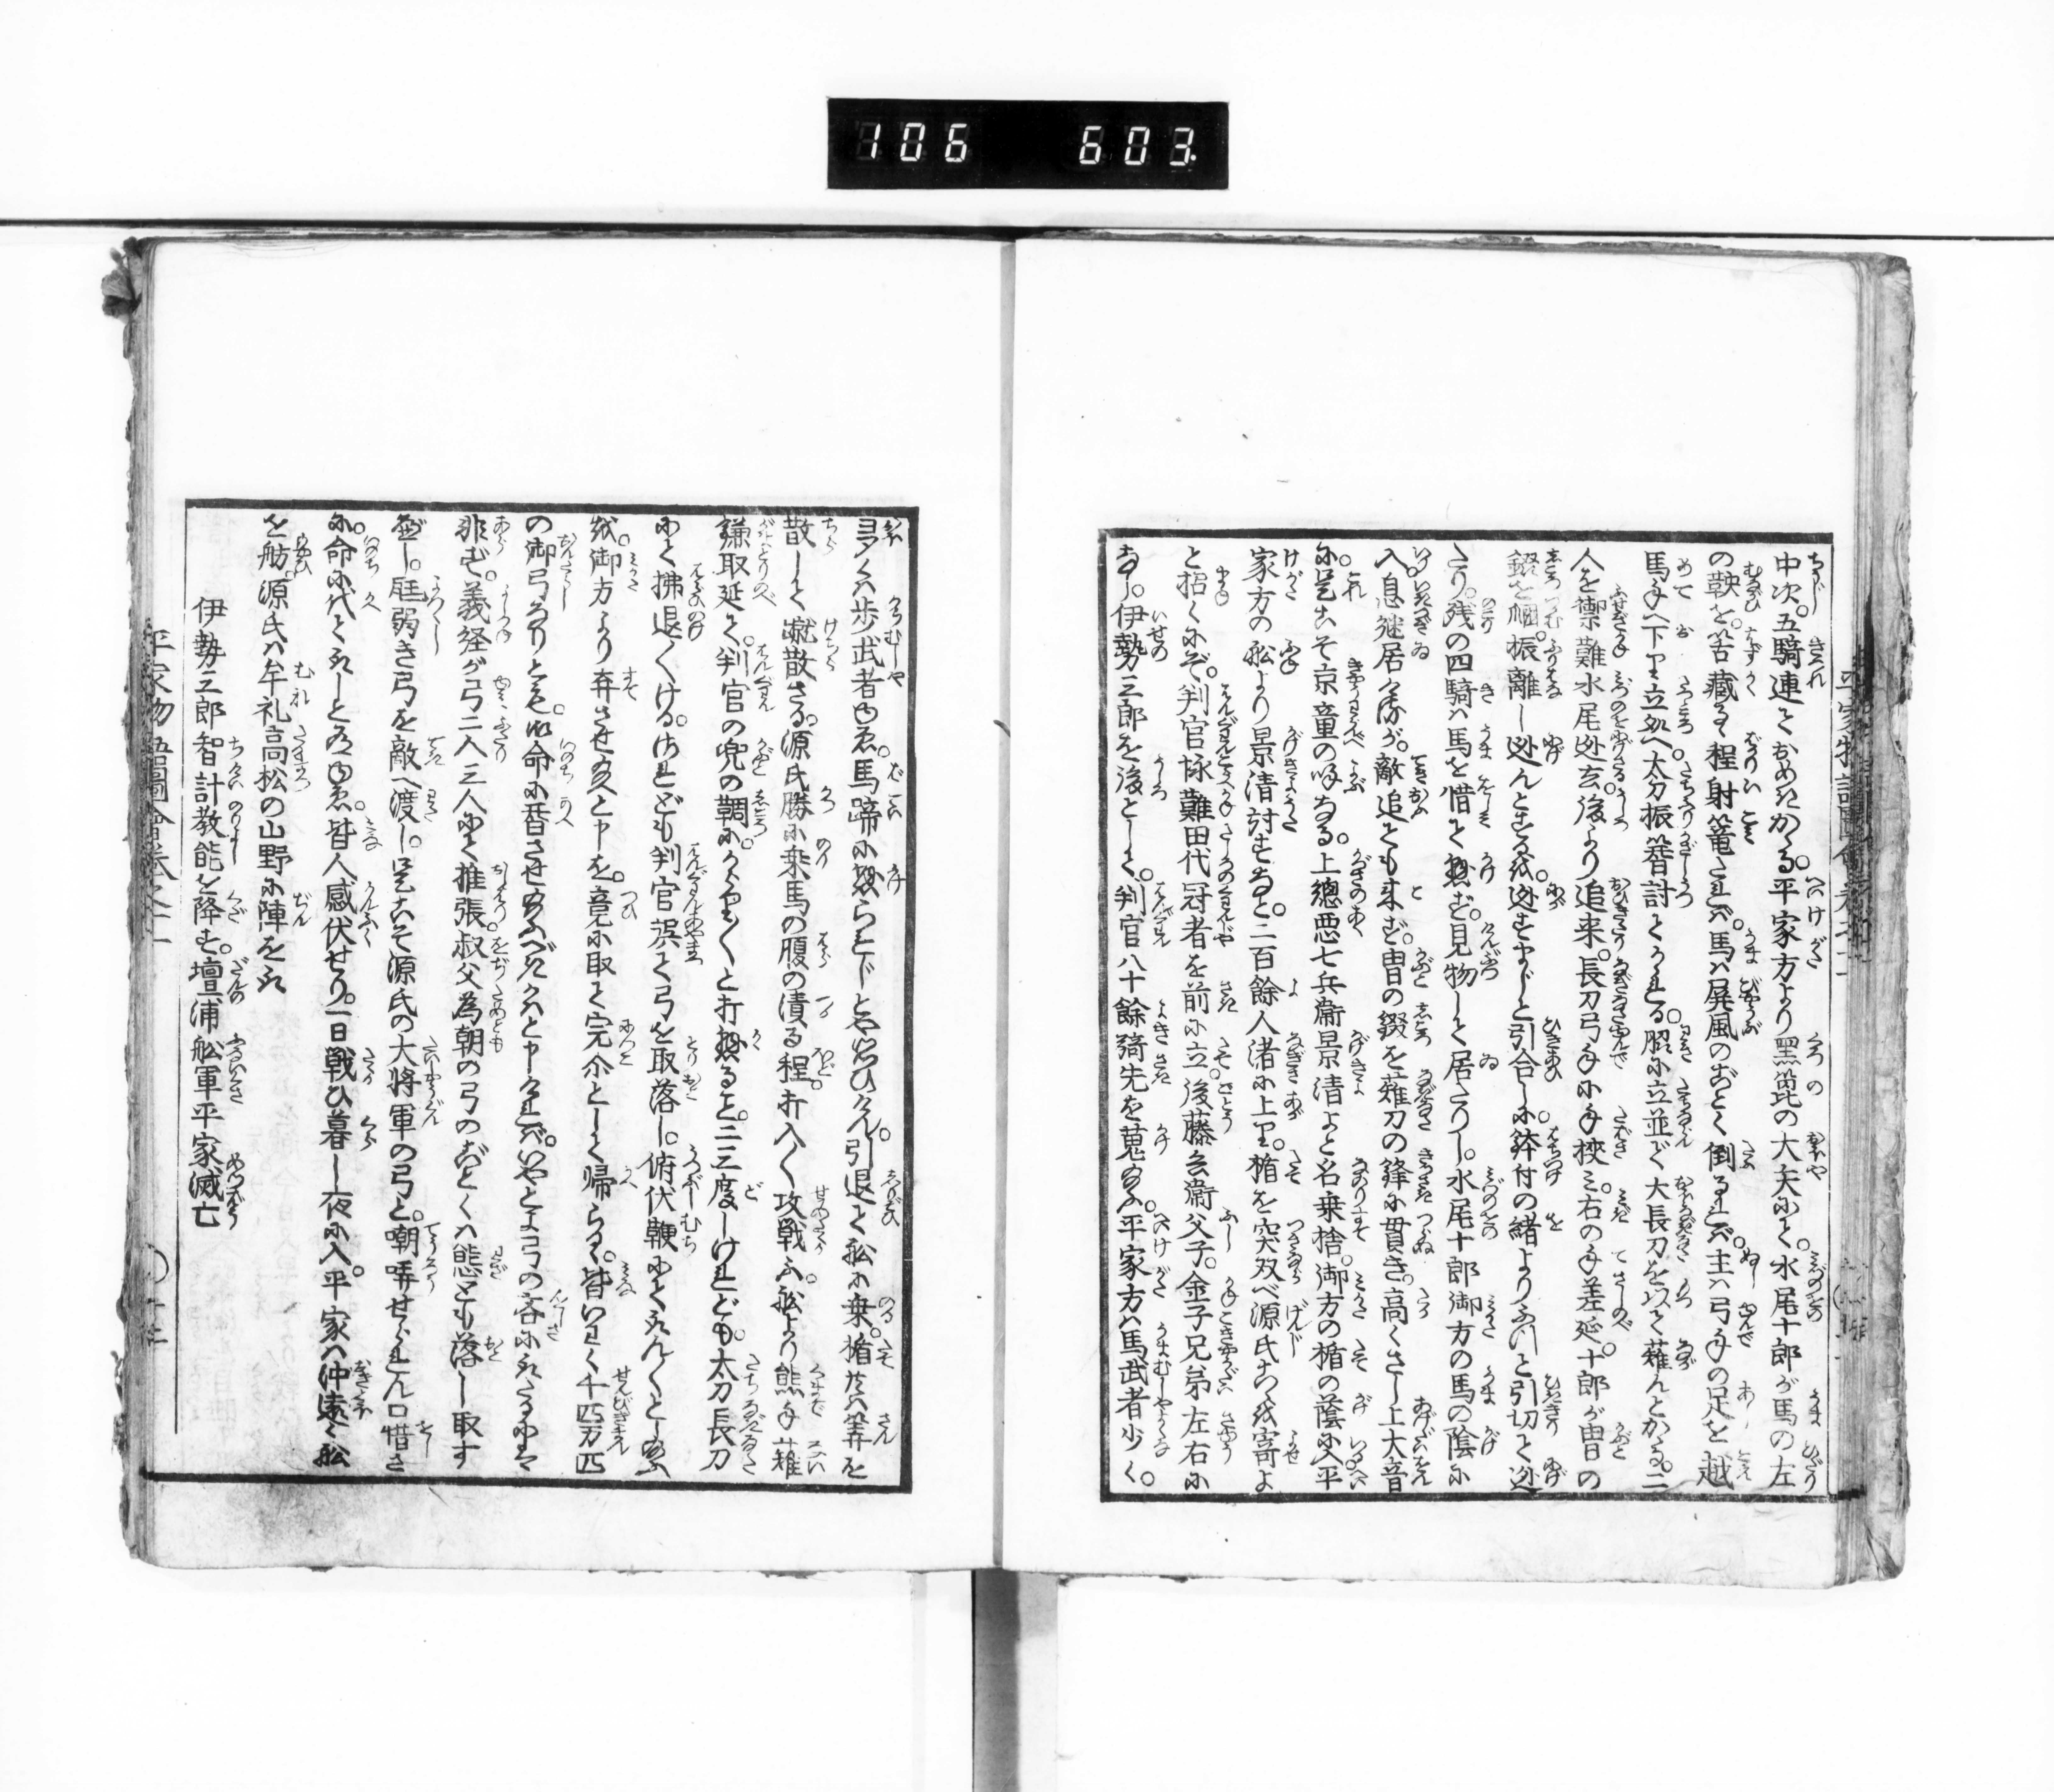 106 603
中次。五騎連ておめきかゝる。平家方より黒笓の大矢にて。水尾十郎が馬の左
の鞅を。筈蔵る程射篭たれば。馬は屏風のごとく倒るれば。主は弓手の足を越
馬手へ下り立処へ。太刀振簪討とかゝる。脇に立並で大長刀を以て薙んとかゝる。二
人を禦難水尾迯玄。後より追来。長刀弓手に手挾ミ。右の手差延。十郎が冑の
錣を掴。振離し迯んとするを。迯すまじと引合しに。鉢付の緒よりふつと引切て迯
たり。残の四騎は馬を惜て懸ず。見物して居たりし。水尾十郎御方の馬の陰に
入。息継居けるが。敵追ても来ず。冑の錣を薙刀の鋒に貫き。高くさし上大音
に。是こそ京童の呼なる。上總悪七兵衞景清よと名乗捨。御方の楯の蔭に入。平
家方の舩より景清討すなと。二百餘人渚に上り。楯を突双べ源氏こゝを寄よ
と招くにぞ。判官咏難田代冠者を前に立。後藤兵衞父子。金子兄弟左右に
なし。伊勢三郎を後として。判官八十餘騎先を蒐給ふ。平家方は馬武者少く。
ヨク〳〵は歩武者ゆゑ。馬蹄に懸らとじとや思ひけん。引退て舩に乗。楯共は筭を
散して蹴散さる。源氏勝に乗馬の腹の漬る程。打入〳〵攻戦ふ。舩より熊手薙
鎌取延て。判官の兜の鞠に。からり〳〵と打懸ると。二三度しけれども。太刀長刀
にて拂退〳〵ける。されども判官誤て弓を取落し。俯伏鞭にて取ん〳〵とし給ふ
を。御方より弃させ給へと申を。竟に取て完尓として帰らる。皆いはく千疋万疋
の御弓なりとも。御命に替させ給ふべきかはと申ければ。いやとよ弓の吝に取たるにも
非ず。義経が弓二人三人にて推張。叔父為朝の弓のごとくは態とも落し取す
べし。尫弱き弓を敵へ渡し。是こそ源氏の大将軍の弓と。嘲哢せられん口惜さ
に。命に代て取しとある故。皆人感伏せり。一日戦ひ暮し夜に入。平家は沖遠く舩
を舫。源氏は牟礼高松の山野に陣を取
伊勢三郎智計教能を降す。壇浦舩軍平家滅亡